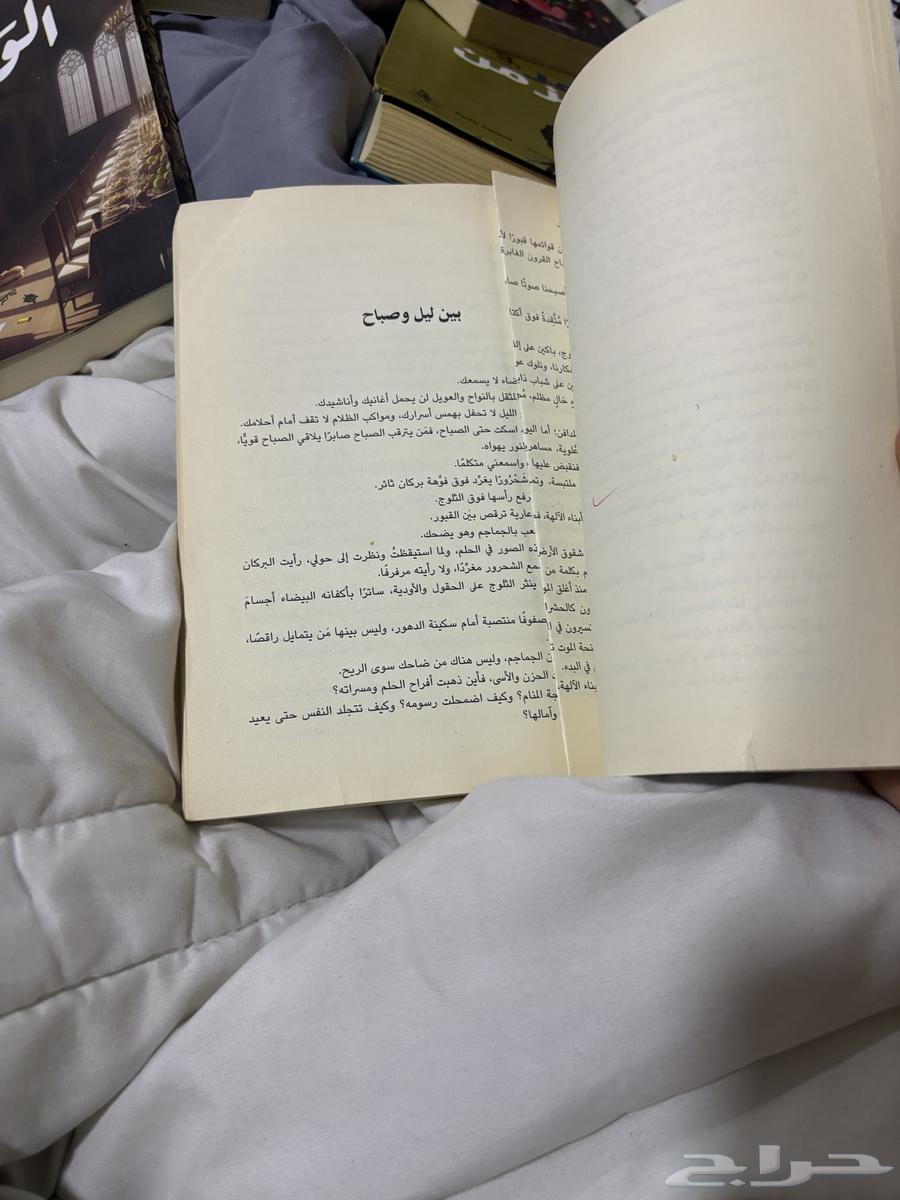 بين ليل وصباح
ضاء لا يسمعك.
لمثقل بالنواح والعويل لن يحمل أغانيك وأناشيدك.
الليل لا تحفل بهمس أسرارك، ومواكب الظلام لا تقف أمام أحلامك.
اسكت حتى الصباح، فمَن يترقب الصباح صابرًا يلاقي الصباح قويًّا،
لنور يهواه.
واسمعني متكلمًا.
شحْرُورًا يغرِّد فوق فوَّهة بركان ثائر.
رفع رأسها فوق الثلوج.
عارية ترقص بيْن القبور.
عب بالجماجم وهو يضحك.
ذه الصور في الحلم، ولما استيقظتُ ونظرت إلى حولي، رأيت البركان
مع الشحرور مغرِّدًا، ولا رأيته مرفرفًا.
ينثر الثلوج على الحقول والأودية، ساترًا بأكفانه البيضاء أجسامَ
صفوفًا منتصبة أمام سكينة الدهور، وليس بينها مَن يتمايل راقصًا،
ن الجماجم، وليس هناك من ضاحك سوى الريح.
الحزن والأسى، فأين ذهبت أفراح الحلم ومسراته؟
جة المنام؟ وكيف اضمحلت رسومه؟ وكيف تتجلد النفس حتى يعيد
وآمالها؟
ن قوائمها قبورًا لأ
اح القرون الغابرة
أصبحنا صوتًا صار
مُتَّقدةً فوق أكتا
وج، باكين على
كارنا، ونلوك عو
ين على شباب
خالٍ مظلم،
لدافن: أما اليو
عُلوية، مساهر
فنقبض عليها
ملتبسة، وتم
أبناء الآلهة، ف
شقوق الأرض
م بكلمة من
منذ أغلق المو
ون كالحشرا
نسيرون في
نحة الموت
في البدء.
بناء الآلهة،
زمن
حراج